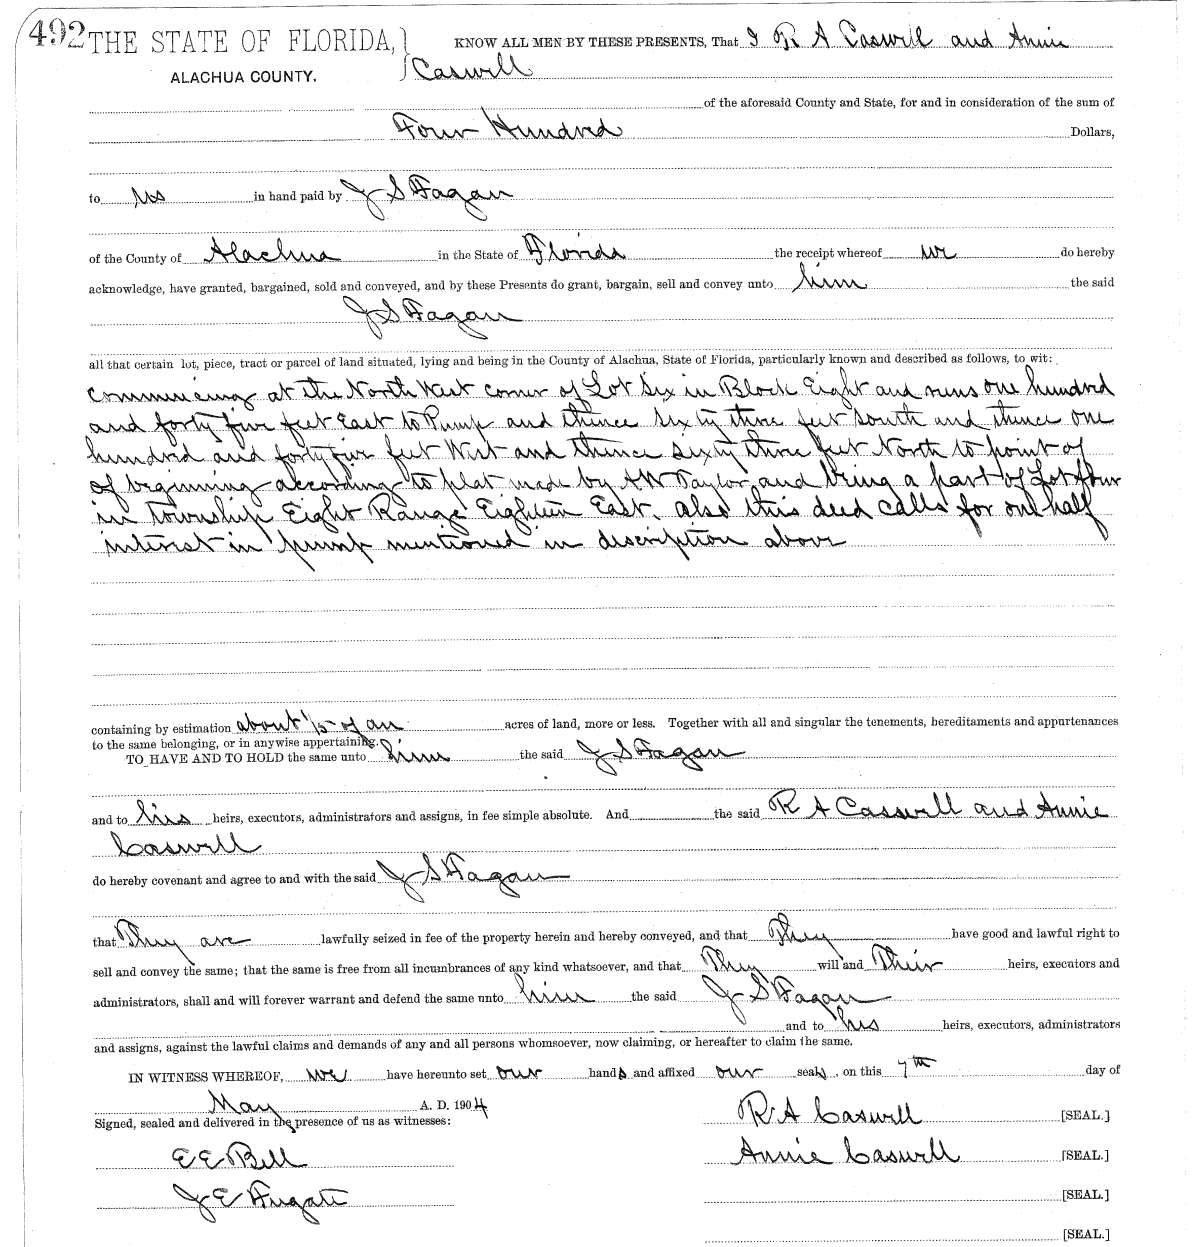 492 THE STATE OF FLORIDA, KNOW ALL MEN BY THESE PRESENTS, That I R A Caswell and Annie
ALACHUA COUNTY. Caswell
of the aforesaid County and State, for and in consideration of the sum of
Four Hundred Dollars,
to us in hand paid by J S Fagan
of the County of Alachua in the State of Florida the receipt whereof we do hereby
acknowledge, have granted, bargained, sold and conveyed, and by these Presents do grant, bargain, sell and convey unto him the said
J S Fagan
all that certain lot, piece, tract or parcel of land situated, lying and being in the County of Alachua, State of Florida, particularly known and described as follows, to wit:
Commencing at the North West corner of Lot Six in Block Eight and runs one hundred
and forty five feet East to Pump and thence sixty three feet South and thence one
hundred and forty five feet West and thence sixty three feet North to point of
of beginning according to plat made by A W Taylor and being a part of Lot four
in Township Eight Range Eighteen East. also this deed calls for one half
interest in pump mentioned in discription above
containing by estimation about 1/5 of an acres of land, more or less. Together with all and singular the tenements, hereditaments and appurtenances
to the same belonging, or in anywise appertaining.
TO HAVE AND TO HOLD the same unto him the said J S Fagan
and to his heirs, executors, administrators and assigns, in fee simple absolute. And the said R A Caswell and Annie
Caswell
do hereby covenant and agree to and with the said J S Fagan
that They are lawfully seized in fee of the property herein and hereby conveyed, and that They have good and lawful right to
sell and convey the same; that the same is free from all incumbrances of any kind whatsoever, and that They will and Their heirs, executors and
administrators, shall and will forever warrant and defend the same unto him the said J S Fagan
and to his heirs, executors, administrators
and assigns, against the lawful claims and demands of any and all persons whomsoever, now claiming, or hereafter to claim the same.
IN WITNESS WHEREOF, we have hereunto set our hands and affixed our seals, on this 7th day of
May A. D. 1904
Signed, sealed and delivered in the presence of us as witnesses: R A Caswell [SEAL.]
E E Bell Annie Caswell [SEAL.]
J E Fugate [SEAL.]
[SEAL.]